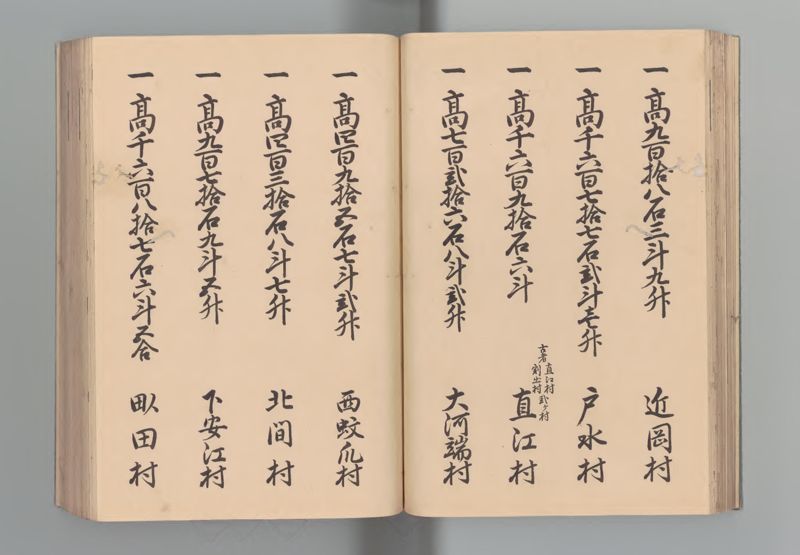 一 高九百拾八石三斗九升 近岡村
一 高千六百七拾七石弐斗壱升 戸水村
一 高千六百九拾石六斗 直江村
古者 直江村 割出村 弐ヶ村
一 高七百弐拾六石八斗弐升 大河端村
一 高四百九拾五石七斗弐升 西蚊爪村
一 高四百三拾石八斗七升 北間村
一 高九百七拾石九斗五升 下安江村
一 高千六百八拾七石六斗五合 畝田村